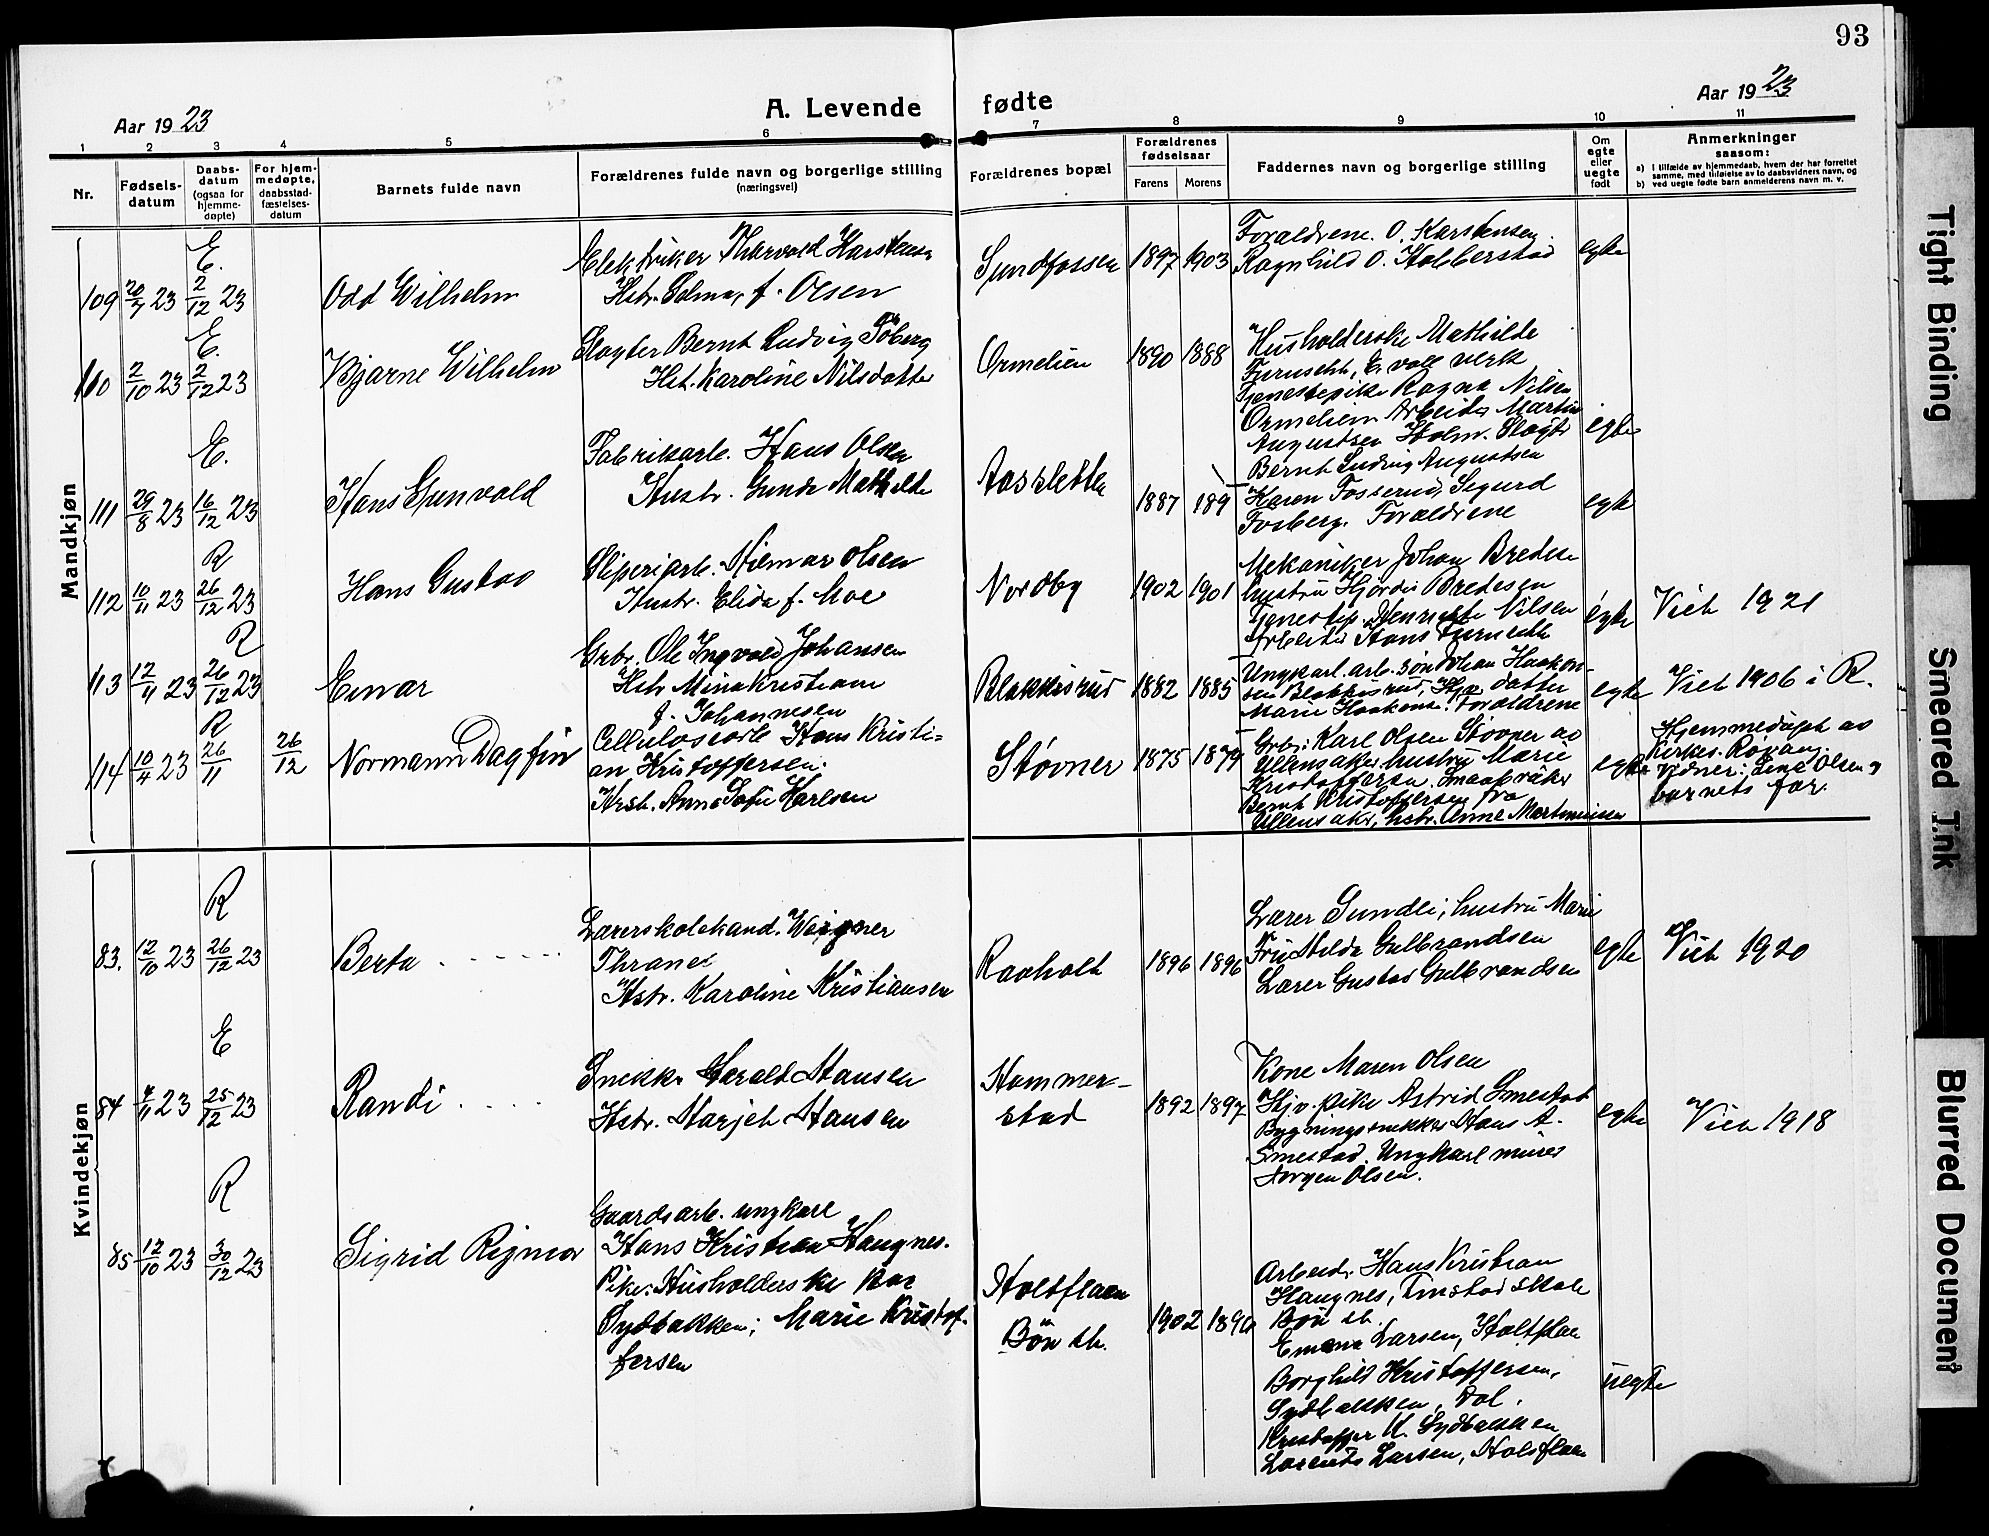 93
Aar 1923
A. Levende fødte
Aar 1923
1 2 3 4 5 6 7 8 9 10 11
Nr.
Fødsels-
datum
Daabs-
datum
(ogsaa for
hjemme-
døpte)
For hjem-
medøpte,
daabsstad-
fæstelses-
datum
Barnets fulde navn
Forældrenes fulde navn og borgerlige stilling
(næringsvei)
Forældrenes bopæl
Forældrenes
fødselsaar
Farens
Morens
Faddernes navn og borgerlige stilling
Om
egte
eller
uegte
født
Anmerkninger
saasom:
a) I tilfælde av hjemmedaab, hvem der har forrettet
samme, med tilføielse av to daabsvidners navn, og
b) ved uegte fødte barn anmelderens navn m. v.
Mandkjøn
E.
109 20/7 23 2/12 23
Odd Wilhelm
Elektriker Thorvald Karstensen
Hstr. Selma, f. Olsen
Sundfossen
1897 1903
Forældrene. O. Karstensen.
Ragnhild O. Habberstad
egte
E.
110 2/10 23 2/12 23
Bjarne Wilhelm
Slagter Bernt Ludvig
Hst. Karoline Nilsdatter
Ormelien
1890 1888
Husholderske Mathilde
Furuseth, E. voll verk
Tjenestepike Ragna Nilsen
Ormelien Arbeider Martin
Augustsen Holm. Slagt.
Bernt Ludvig Augustsen
egte
E.
111 29/8 23 16/12 23
Hans Gunvald
Fabrikarb. Hans Olsen
Hustr. Gunda Mathilde
Aassletten
1887 1891
Karen Fosserud, Sigurd
Fosberg. Forældrene
egte
R
112 10/11 23 26/12 23
Hans Gustav
Sliperiarb. Hilmar Olsen
Hustr. Elida f. Moe
Nordby
1902 1901
Mekaniker Johan Bredesen
hustru Hjørdis Bredesen
Tjenestep. Henriette Nilsen
Arbeider Hans Furuseth
egte
Viet 1921
R
113 12/11 23 26/12 23
Einar
Grbr. Ole Ingvald Johansen
Hstr Mina Kristiane
f. Johannesen
Blakkisrud
1882 1885
Ungkarl. arb. søn Johan Haakon-
sen Blakkisrud, datter
Marie Haakons. Forældrene
egte
Viet 1906 i R.
R
114 10/4 23 26/11
26/12
Normann Dagfin
Cellulosearb Hans Kristi-
an Kristoffersen.
Hust. Anna Sofie Karlsen
Støvner
1875 1879
Grbr. Karl Olsen Støvner av
Ullensaker hustru Marie
Kristoffersen. Smaabruker
Bernt Kristoffersen fra
Ullensaker, hstr. Anne Martinusen
egte
Hjemmedøpt av
Kirkes.
Vidner: Line Olsen og
barnets far.
Kvindekjøn
R
83. 12/10 23 26/12 23
Berta
Lærerskolekand. Wergner
Thrane
Hstr. Karoline Kristiansen
Raaholt
1896 1896
Lærer Sundli, hustru Marie
Fru Hilda Gulbrandsen
Lærer Gustav Gulbrandsen
egte
Viet 1920
E
84 4/11 23 25/12 23
Randi
Snekk. Harald Hansen
Hstr. Marjet Hansen
Hammer-
stad
1892 1897
Kone Maren Olsen
Hj.v. pike Astrid Smestad
Bygningssnekker Hans A.
Smestad. Ungkarl murer
Jørgen Olsen.
egte
Viet 1918
R
85 12/10 23 30/12 23
Sigrid Rigmor
Gaardsarb. ungkarl
Hans Kristian Haugnes.
Pike: Husholderske
Sydbakken; Marie Kristof-
fersen
Holtflaen
Bøn st.
1902 1896
Arbeidr. Hans Kristian
Haugnes, Finstad skole
Bøn st.
Emma Larsen, Holtflaen
Borghild Kristoffersen,
Sydbakken, Dal.
Kristoffer K. Sydbakken
Larsen, Holtflaen
uegte
Tight Binding
Smeared Ink
Blurred Document